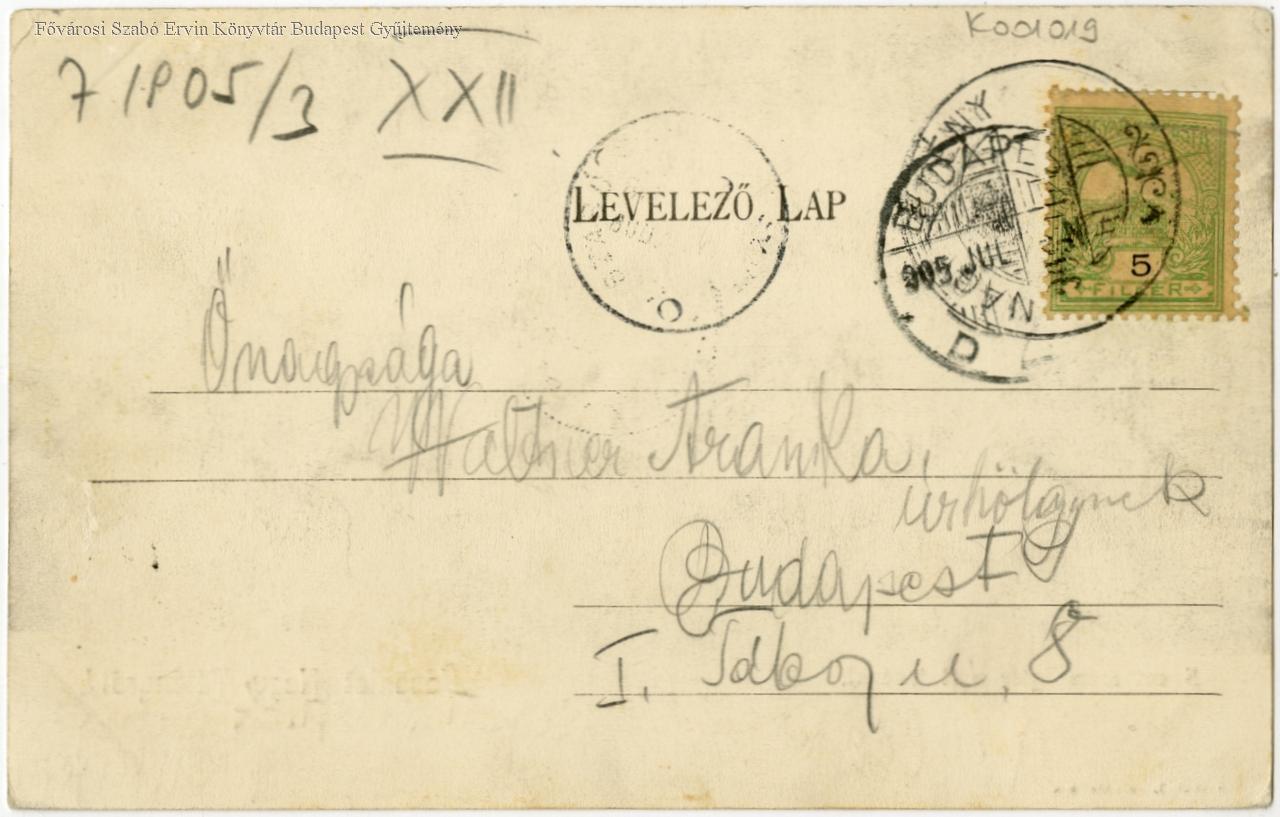 Fővárosi Szabó Ervin Könyvtár Budapest Gyűjtemény
K001019
7 1905/3 XXII
LEVELEZŐ LAP
BUDAPEST
905 JUL
D
O
5
FILLÉR
Őnagysága
Aranka
úrhölgynek
Budapest
I. Tábor u. 8